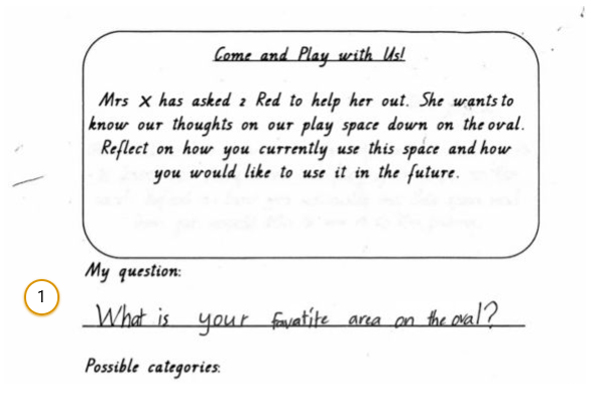 Come and Play with Us!
Mrs X has asked 2 Red to help her out. She wants to
know our thoughts on our play space down on the oval.
Reflect on how you currently use this space and how
you would like to use it in the future.
My question:
1
What is your favatite area on the oval?
Possible categories: